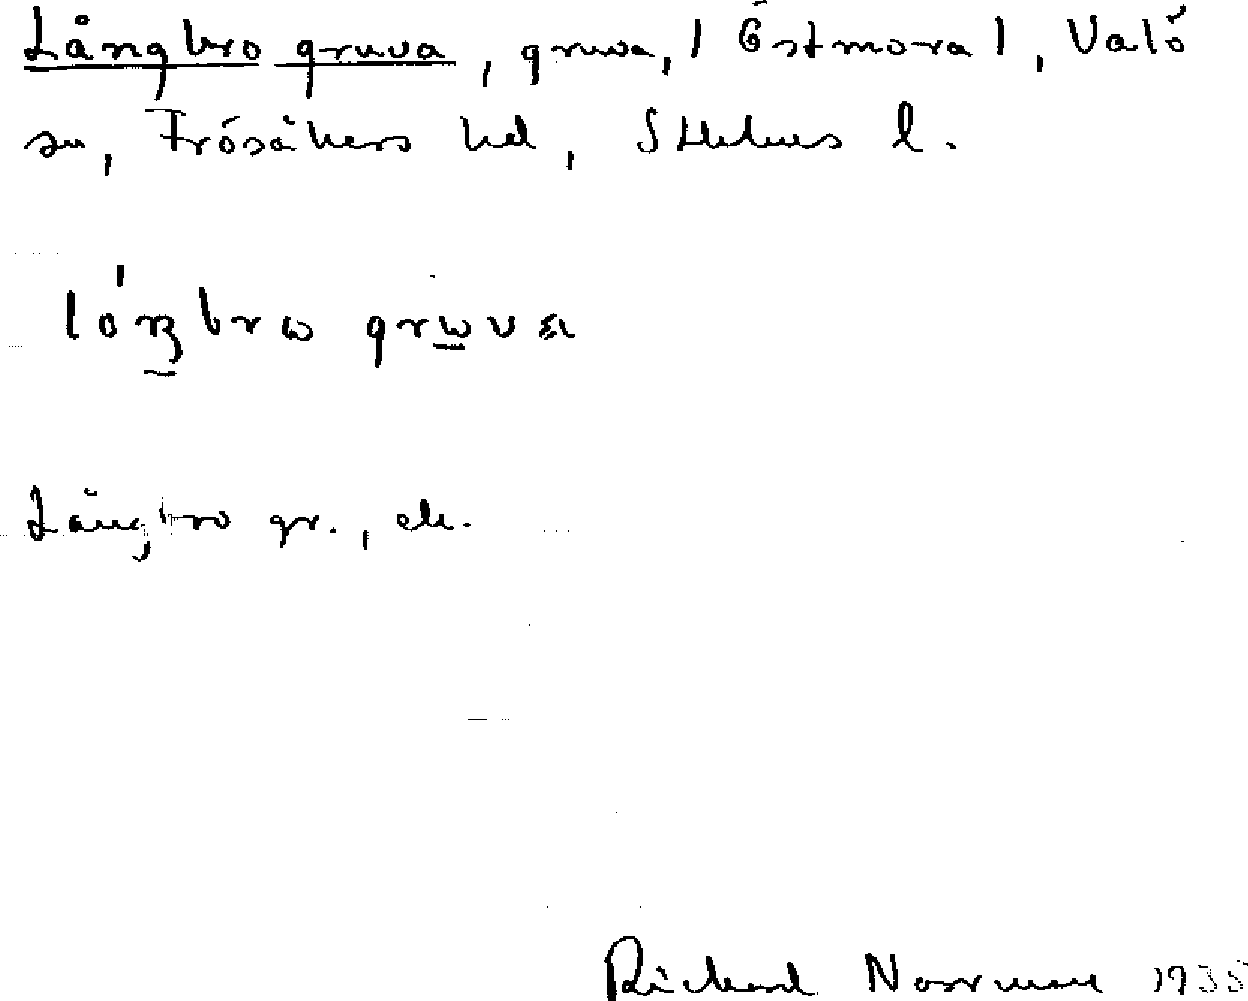 Långbro gruva, gruva, | Östmora |, Valö
sn, Frösåkers hd, Sthlms l.
lóŋbrω grωva
Långbro gr., ek.
Rickard Norrman 1935